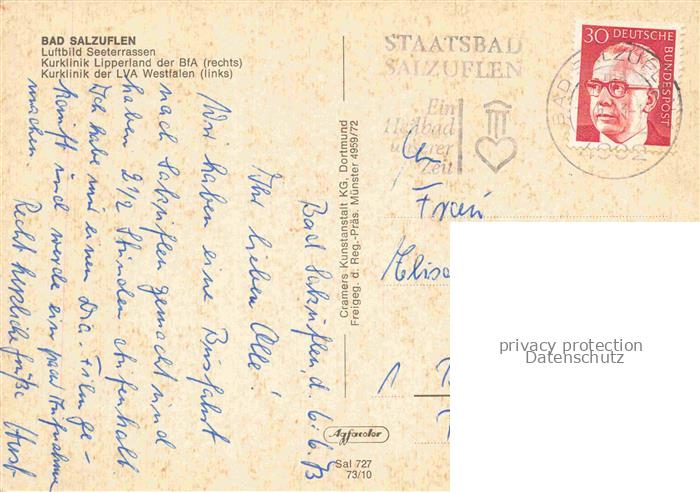 BAD SALZUFLEN
Luftbild Seeterrassen
Kurklinik Lipperland der BfA (rechts)
Kurklinik der LVA Westfalen (links)
Bad Salzuflen, d. 6.6.73
Ihr lieben Alle!
Wir haben eine Busfahrt
nach Salzuflen gemacht und
haben 2 1/2 Stunden Aufenthalt
Ich habe mir einen Dia-Film ge-
kauft und werde ein paar Aufnahmen
machen
Recht herzliche Grüße Horst
Cramers Kunstanstalt KG, Dortmund
Freigeg. d. Reg.-Präs. Münster 4959/72
STAATSBAD
SALZUFLEN
Ein
Heilbad
unserer
Zeit
30 DEUTSCHE
BUNDESPOST
BAD SALZUFLEN
4902
Frau
Agfacolor
Sal 727
73/10
privacy protection
Datenschutz